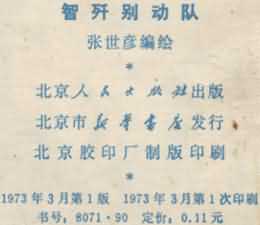 智歼别动队
张世彦编绘
*
北京人民出版社出版
北京市新华书店发行
北京胶印厂制版印刷
*
1973年3月第1版 1973年3月第1次印刷
书号：8071·90 定价：0.11元